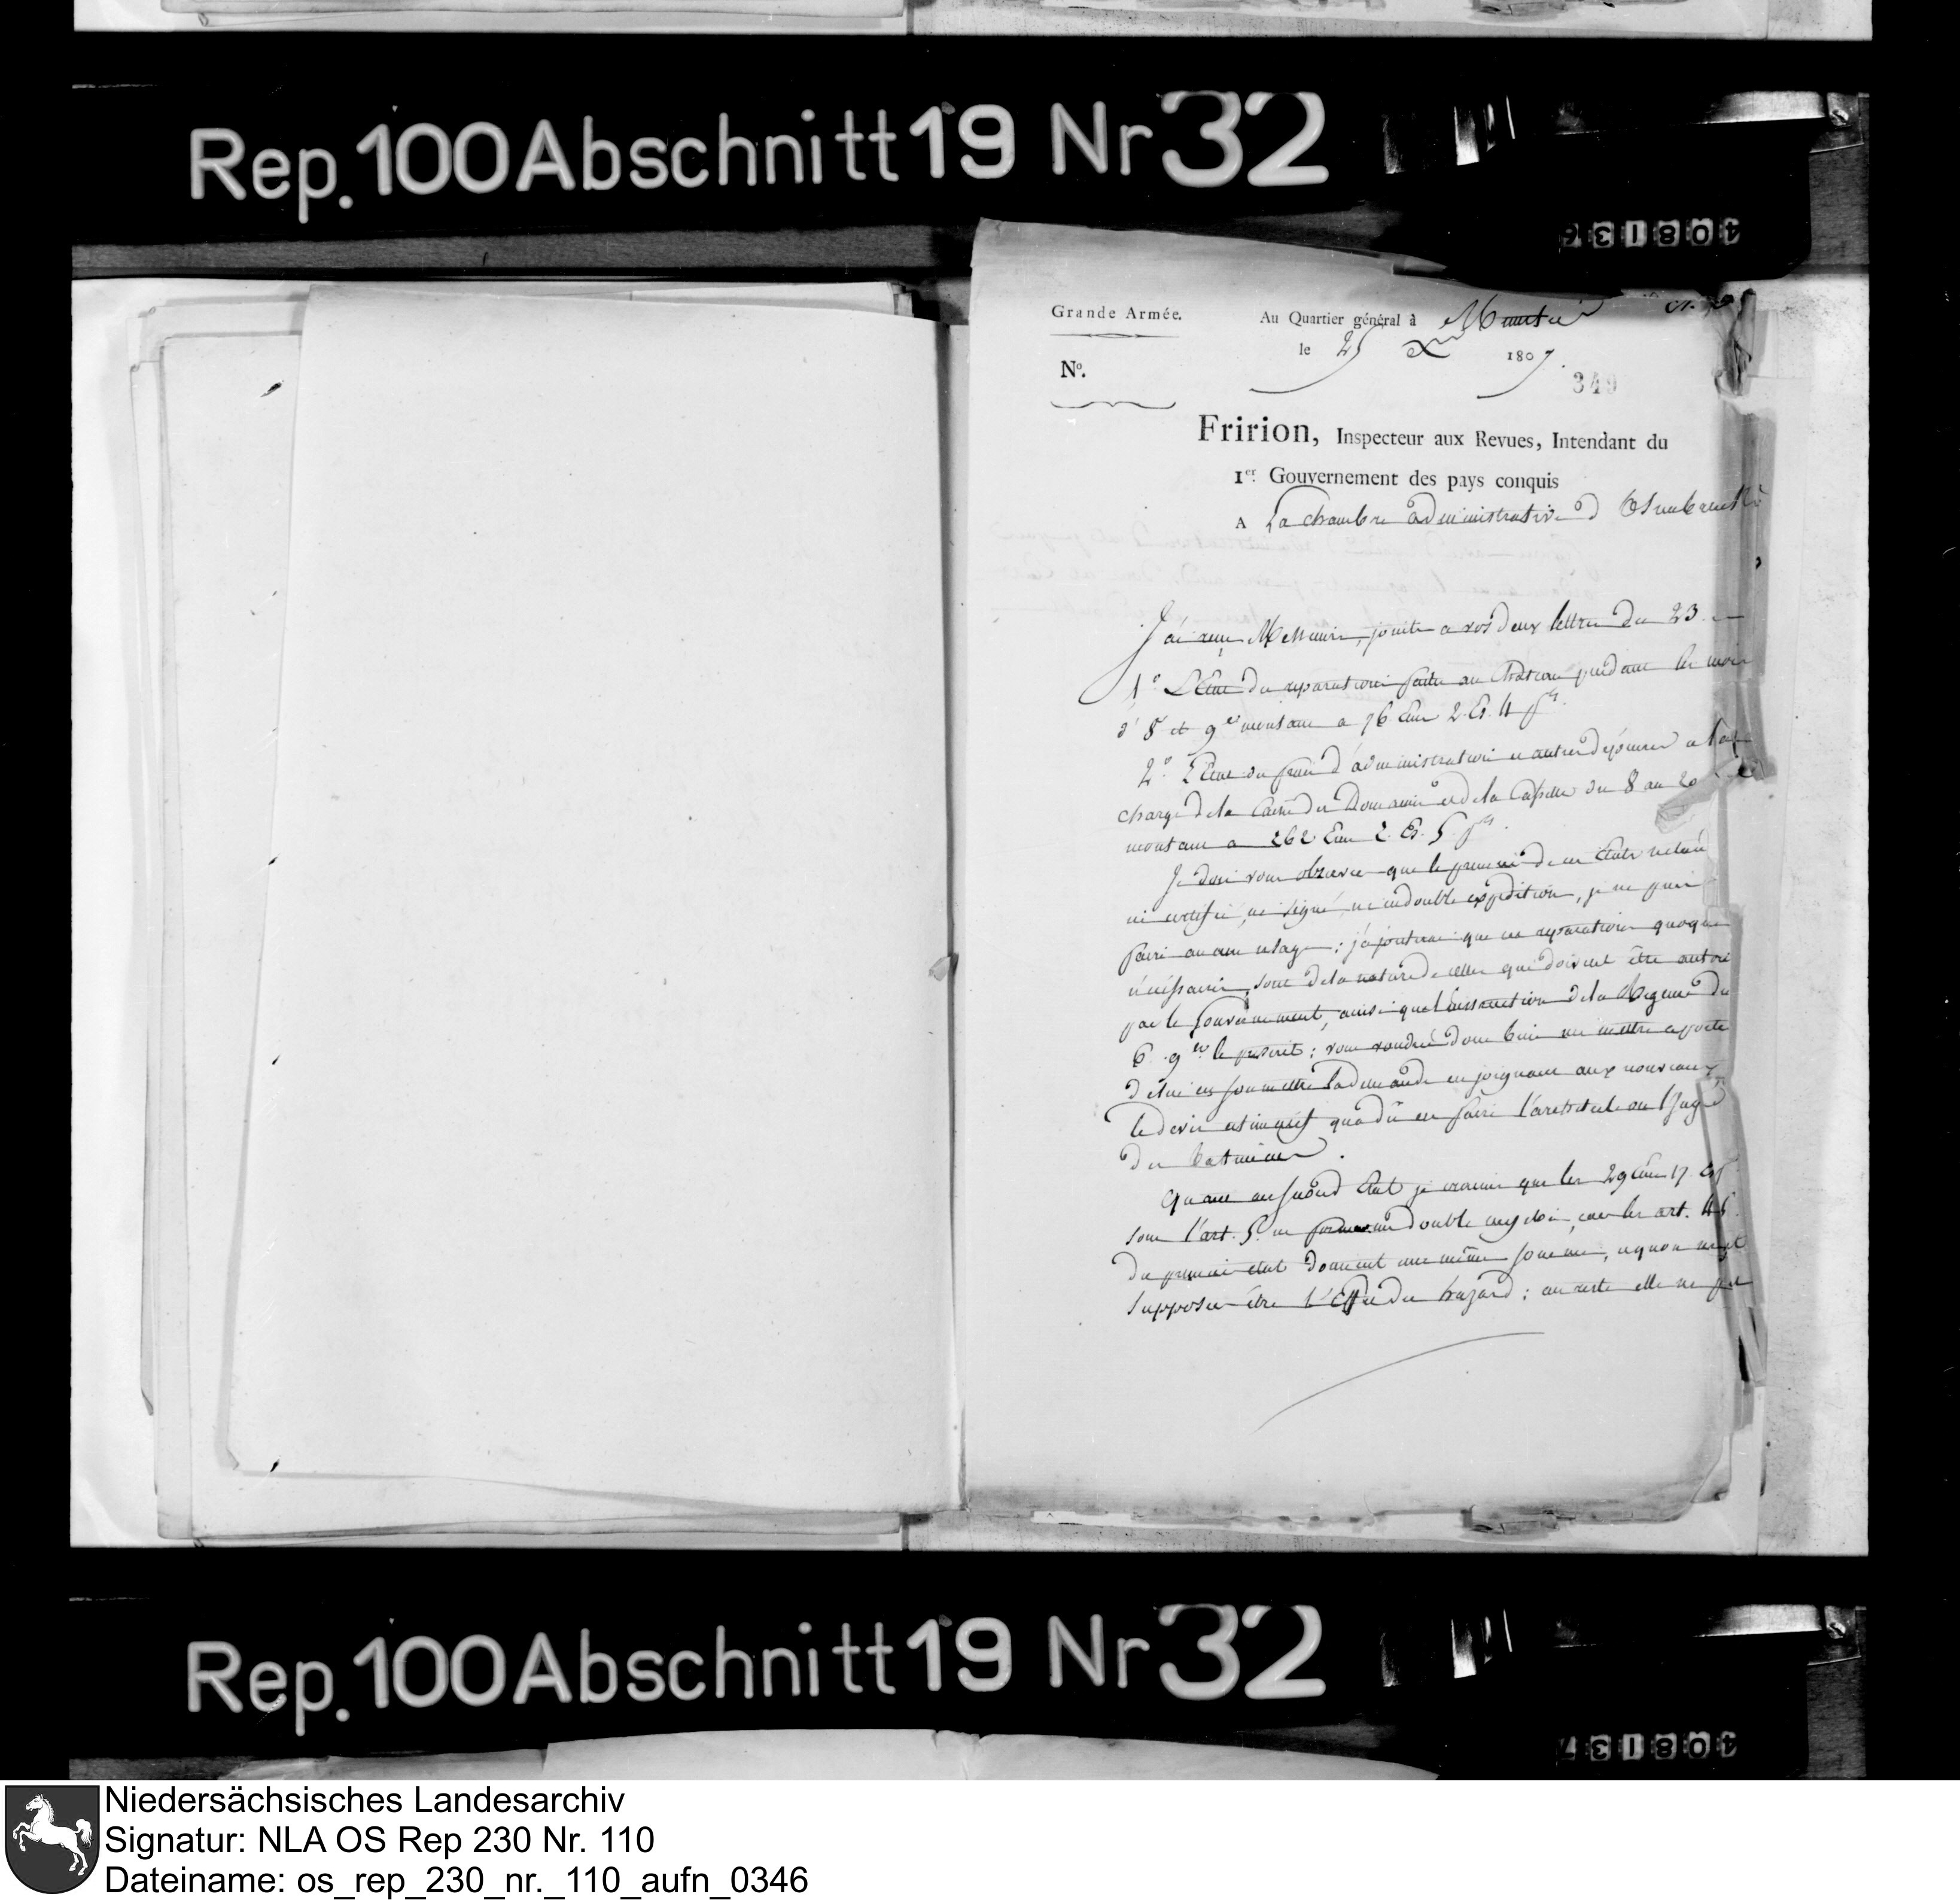 Rep. 100 Abschnitt 19 Nr 32
408136
Grande Armée.
Au Quartier général à Munster
le 25 Xbre 1807.
No.
349
Fririon, Inspecteur aux Revues, Intendant du
1er. Gouvernement des pays conquis
A La chambre administrative d'Osnabruck
J'ai reçu Messieurs, jointe a vos deux lettres du 23
1° L'Etat des reparations faites au Chateau pendant les mois
d' 8 et 9bre montant a 76 Ecus 2. Es. 4
2° L'Etat des frais d'administration et autres dépenses a la
charge de la Caisse des Domaines et de la Capelle du 8 au 20
montant a 262 Ecus 2. Es. 5
Je dois vous observer que le premier de ces Etats n'étant
ni certifié, ni signé, ni en double expédition, je ne puis
faire aucun usage : j'ajouterai que ces reparations quoique
nécessaires, sont de la nature de celles qui doivent être autori
par le Gouvernement, ainsi que l'instruction de la Regence du
6. 9bre le prescrit : vous voudrez donc bien me mettre a porté
d'en soumettre la demande en joignant aux nouveaux
le devis estimatif qu'a dû en faire l'architecte ou
des batimens.
Quant au second Etat je crains que les 29 Ecus 17. Es
sous l'art. 5. ne forment un double emploi, car les art. 4 5.
du premier état donnent une même somme, ce qu'on ne peut
supposer être l'Effet du hazard : au reste elle ne peut
Rep. 100 Abschnitt 19 Nr 32
408137
Niedersächsisches Landesarchiv
Signatur: NLA OS Rep 230 Nr. 110
Dateiname: os_rep_230_nr._110_aufn_0346